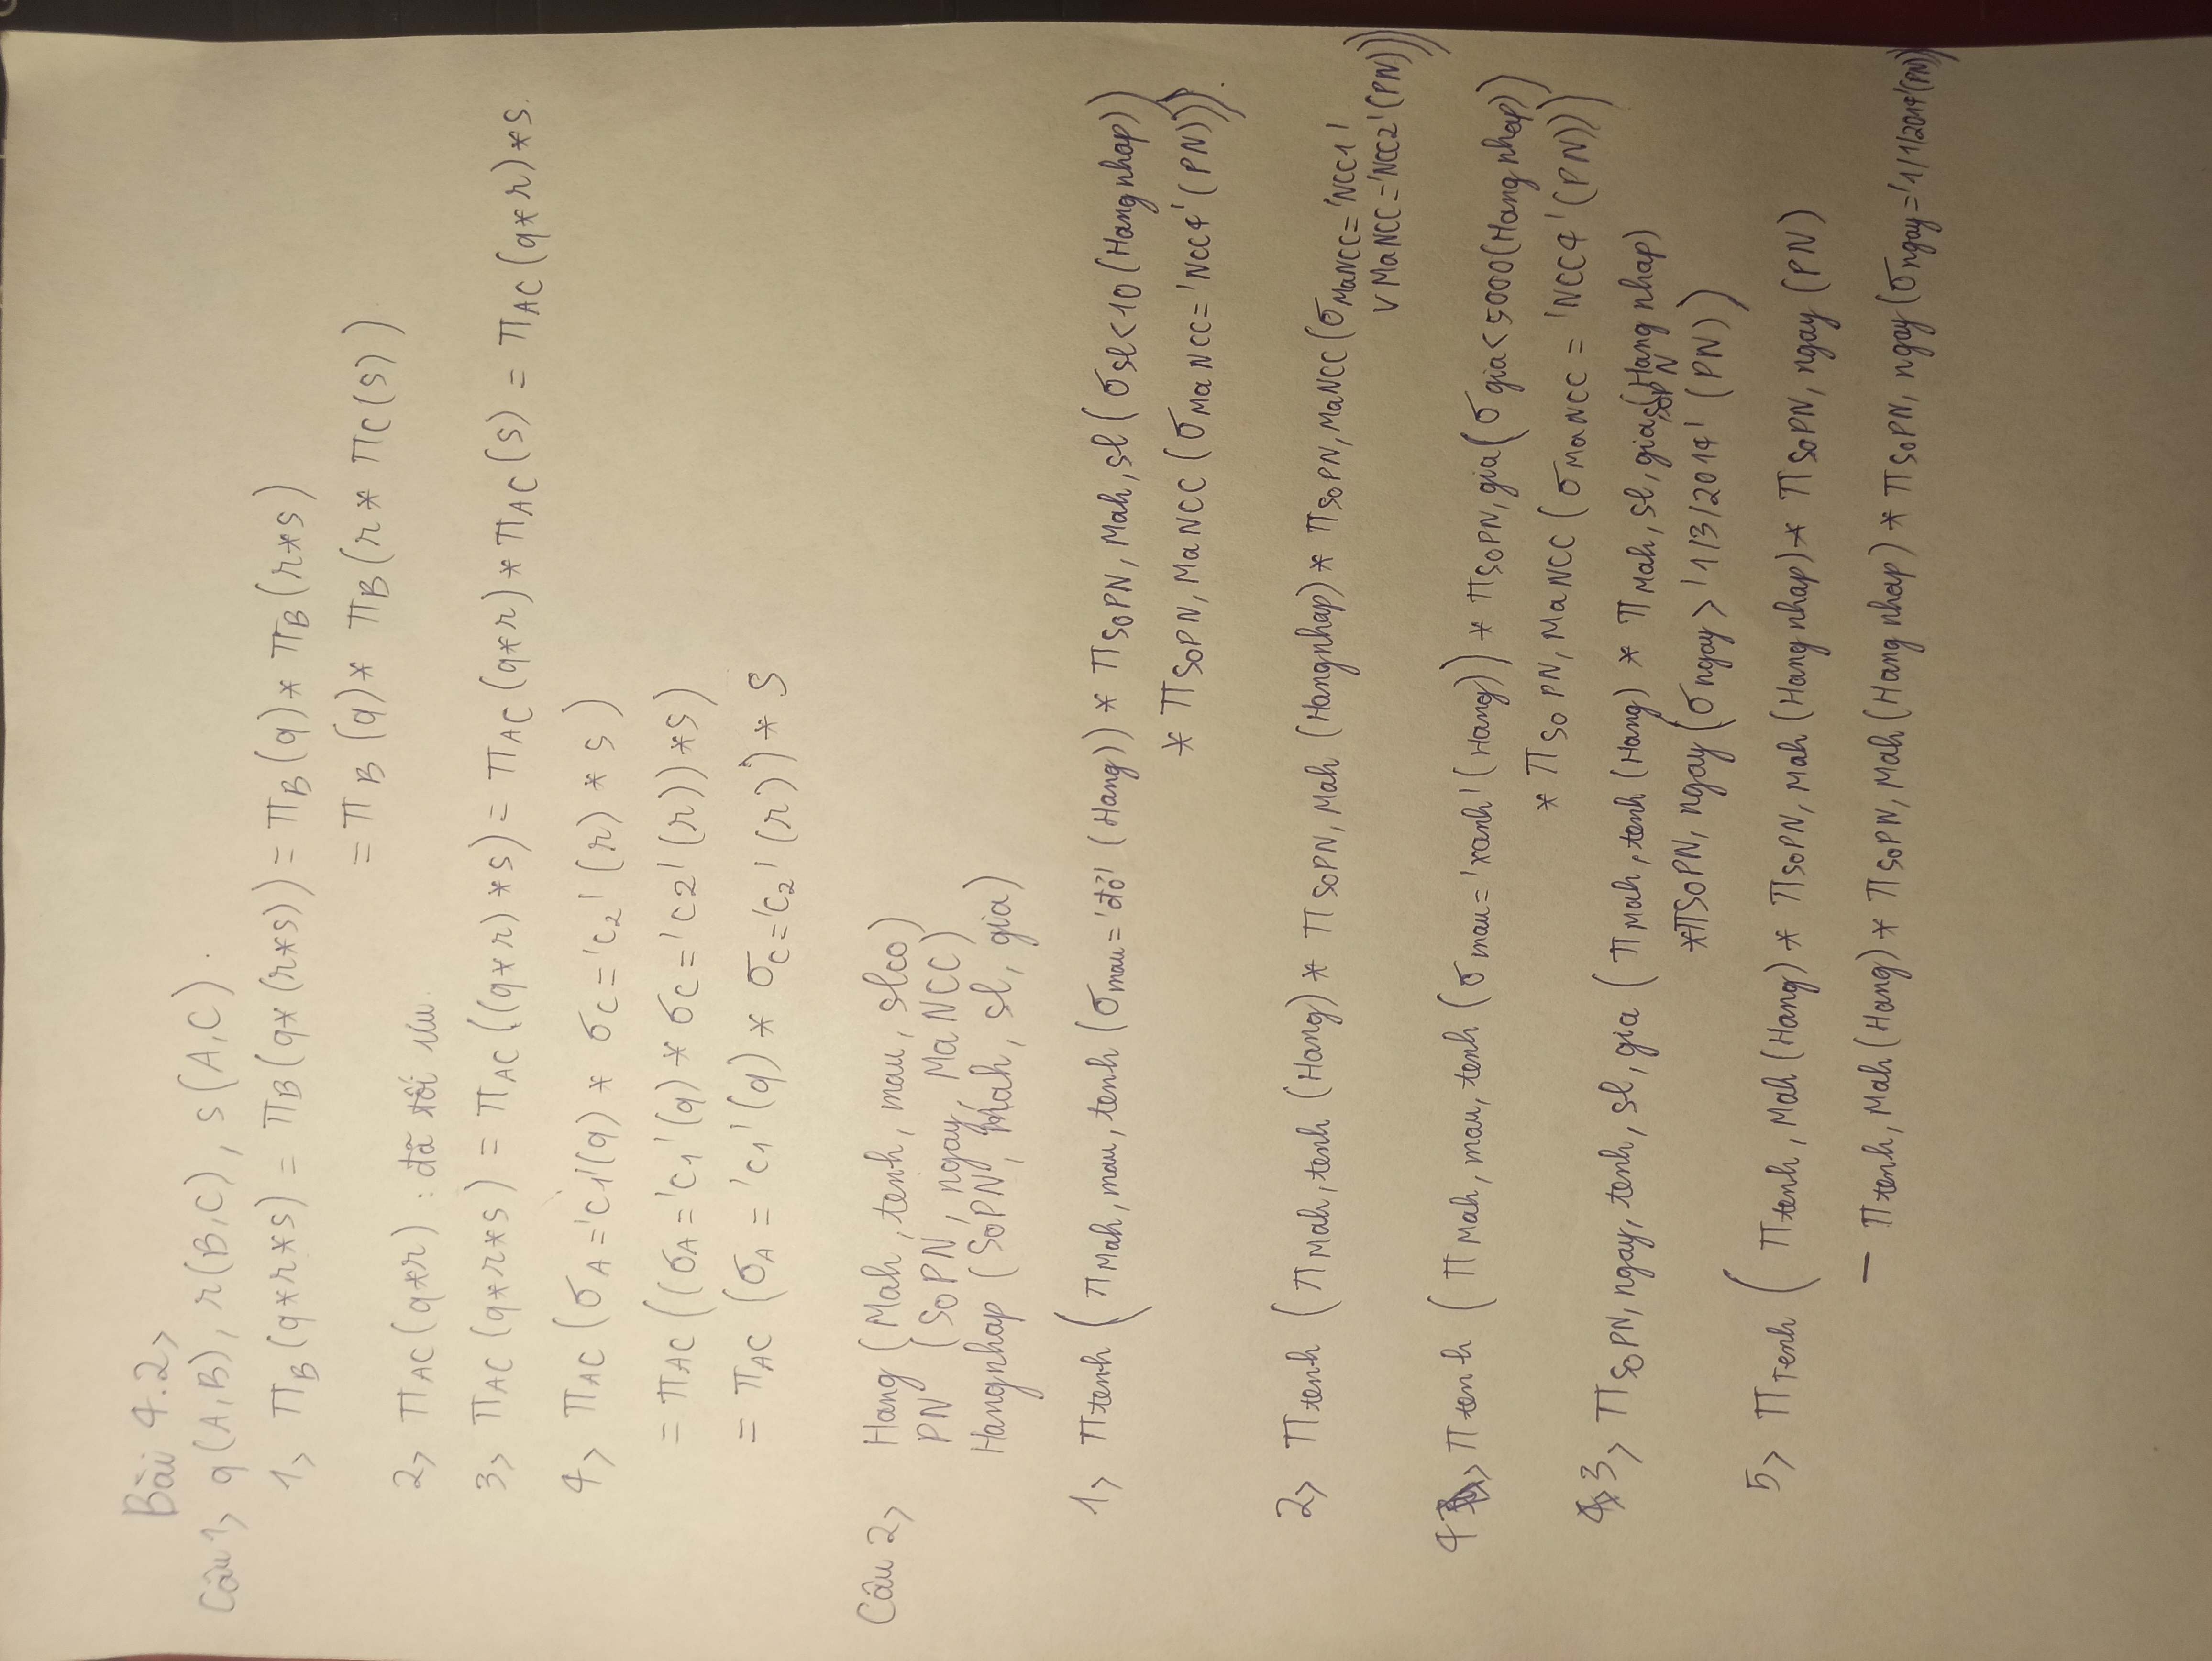 Bài 4.2>
Câu 1> q(A,B), r(B,C), s(A,C).
1> πB(q*r*s) = πB(q*(r*s)) = πB(q) * πB(r*s)
= πB(q) * πB(r * πC(s))
2> πAC(q*r) : đã tối ưu.
3> πAC(q*r*s) = πAC((q*r)*s) = πAC(q*r) * πAC(s) = πAC(q*r)*s.
4> πAC(σA='c1'(q) * σC='c2'(r) * s)
= πAC((σA='c1'(q) * σC='c2'(r))*s)
= πAC(σA='c1'(q) * σC='c2'(r)) * s
Câu 2> Hang (Mah, tenh, mau, slco)
PN (SoPN, ngay, MaNCC)
Hangnhap (SoPN, Mah, sl, gia)
1> πtenh (πMah, mau, tenh (σmau='đỏ' (Hang)) * πSoPN, Mah, sl (σsl<10 (Hangnhap))
* πSoPN, MaNCC (σMaNCC='NCC4' (PN))).
2> πtenh (πMah, tenh (Hang) * πSoPN, Mah (Hangnhap) * πSoPN, MaNCC (σMaNCC='NCC1'
∨ MaNCC='NCC2' (PN)))
4> πtenh (πMah, mau, tenh (σmau='xanh' (Hang)) * πSoPN, gia (σgia<5000 (Hangnhap))
* πSoPN, MaNCC (σMaNCC = 'NCC4' (PN)))
3> πSoPN, ngay, tenh, sl, gia (πMah, tenh (Hang) * πMah, sl, gia, SoPN (Hangnhap)
* πSoPN, ngay (σngay > '1/3/2014' (PN))
5> πTenh (πtenh, Mah (Hang) * πSoPN, Mah (Hangnhap) * πSoPN, ngay (PN)
− πtenh, Mah (Hang) * πSoPN, Mah (Hangnhap) * πSoPN, ngay (σngay='1/1/2014' (PN)))